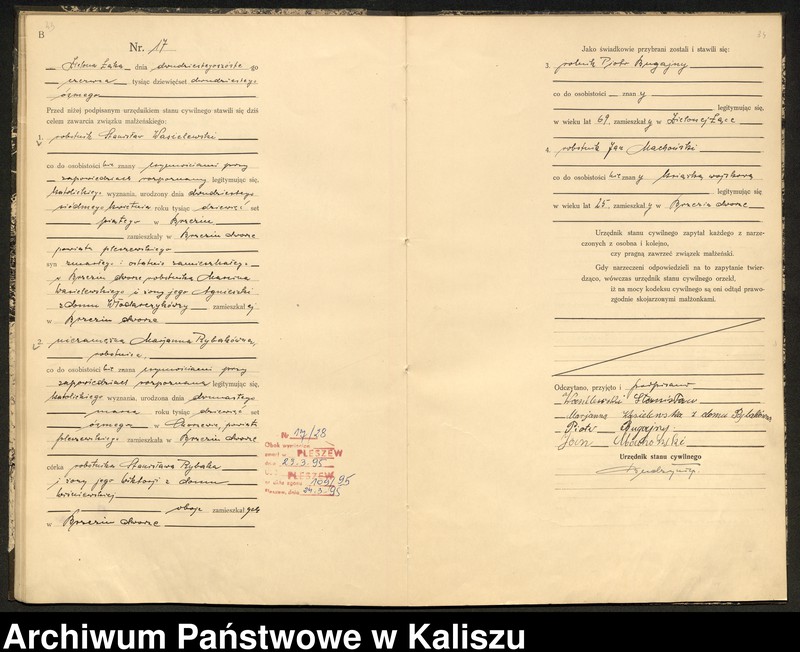 B
Nr. 17
Zielona Łąka dnia dwudziestegoszóste go
czerwca tysiąc dziewięćset dwudziestego
ósmego
Przed niżej podpisanym urzędnikiem stanu cywilnego stawili się dziś
celem zawarcia związku małżeńskiego:
1. robotnik Stanisław Wasielewski
co do osobistości bit znany
zapowiedziach rozpoznany legitymując się,
katolickiego wyznania, urodzony dnia dwudziestego
siódmego kwietnia roku tysiąc dziewięć set
piątego w Brzeziu
zamieszkały w Brzeziu dworze
powiatu pleszewskiego
syn zmarłego i ostatnio zamieszkałego
w Brzeziu dworze robotnika Marcina
Wasielewskiego i żony jego Agnieszki
z domu zamieszkał ej
w Brzeziu dworze
2. niezamężna Marjanna Rybakówna,
robotnica.
co do osobistości bit znana
zapowiedziach rozpoznana legitymując się,
katolickiego wyznania, urodzona dnia dwunastego
marca roku tysiąc dziewięć set
ósmego w powiatu
pleszewskiego zamieszkała w Brzeziu dworze
córka robotnika Stanisława Rybaka
i żony jego Wiktorji z domu
Wiśniewskiej
oboje zamieszkał ych
w Brzeziu dworze
Nr 17/28
PLESZEW
dnia 23.3.95
PLESZEW
109/95
Pleszew, dnia 24.3.95
Jako świadkowie przybrani zostali i stawili się:
3. rolnik Piotr Bugajny
co do osobistości znan y
legitymując się,
w wieku lat 69, zamieszkał y w Zielonej Łące
4. robotnik Jan Machoński
co do osobistości bit znan y książką wojskową
legitymując się
w wieku lat 25, zamieszkał y w Brzeziu dworze
Urzędnik stanu cywilnego zapytał każdego z narze-
czonych z osobna i kolejno,
czy pragną zawrzeć związek małżeński.
Gdy narzeczeni odpowiedzieli na to zapytanie twier-
dząco, wówczas urzędnik stanu cywilnego orzekł,
iż na mocy kodeksu cywilnego są oni odtąd prawo-
zgodnie skojarzonymi małżonkami.
Odczytano, przyjęto i podpisano
Wasielewski Stanisław
Marjanna Wasielewska z domu Rybakówna
Piotr Bugajny
Jan Machoński
Urzędnik stanu cywilnego
Archiwum Państwowe w Kaliszu